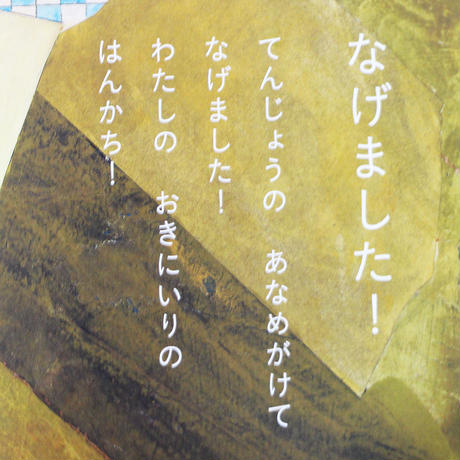 なげました！
てんじょうの　あなめがけて
なげました！
わたしの　おきにいりの
はんかち！